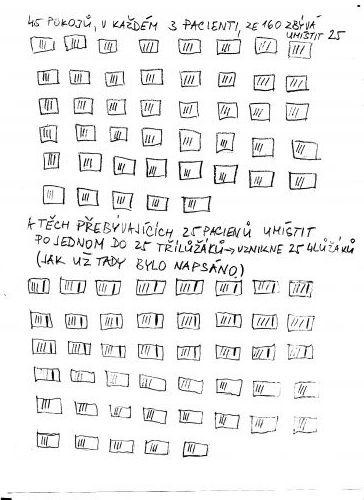 45 POKOJŮ, V KAŽDÉM 3 PACIENTI, ZE 160 ZBÝVÁ
UMÍSTIT 25
A TĚCH PŘEBÝVAJÍCÍCH 25 PACIENŮ UMÍSTIT
PO JEDNOM DO 25 TŘÍLŮŽÁKŮ → VZNIKNE 25 4LŮŽÁKŮ
(JAK UŽ TADY BYLO NAPSÁNO)